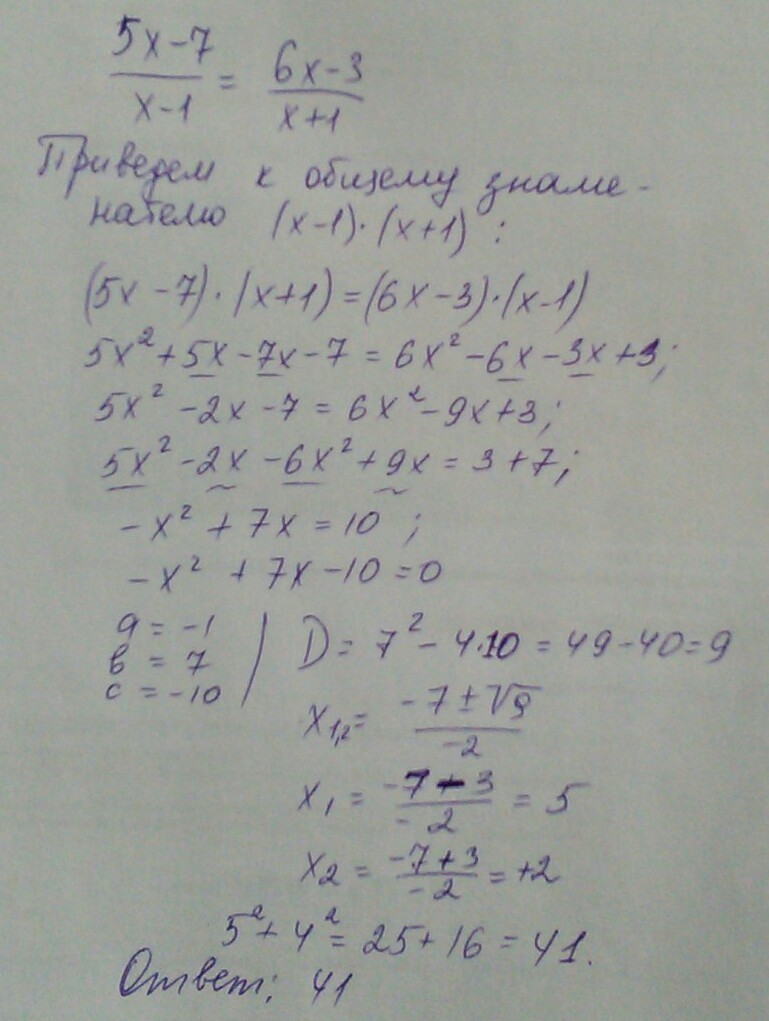 5x-7/x-1 = 6x-3/x+1
Приведем к общему знаме-
нателю (x-1)·(x+1) :
(5x-7)·(x+1)=(6x-3)·(x-1)
5x²+5x-7x-7 = 6x²-6x-3x+3;
5x²-2x-7 = 6x²-9x+3;
5x²-2x-6x²+9x = 3+7;
-x²+7x = 10 ;
-x² + 7x-10=0
a = -1
в = 7
c = -10
D = 7²-4·10 = 49-40=9
x₁,₂= -7±√9/-2
x₁ = -7-3/-2 = 5
x₂ = -7+3/-2 = +2
5²+4²= 25+16 = 41.
Ответ: 41